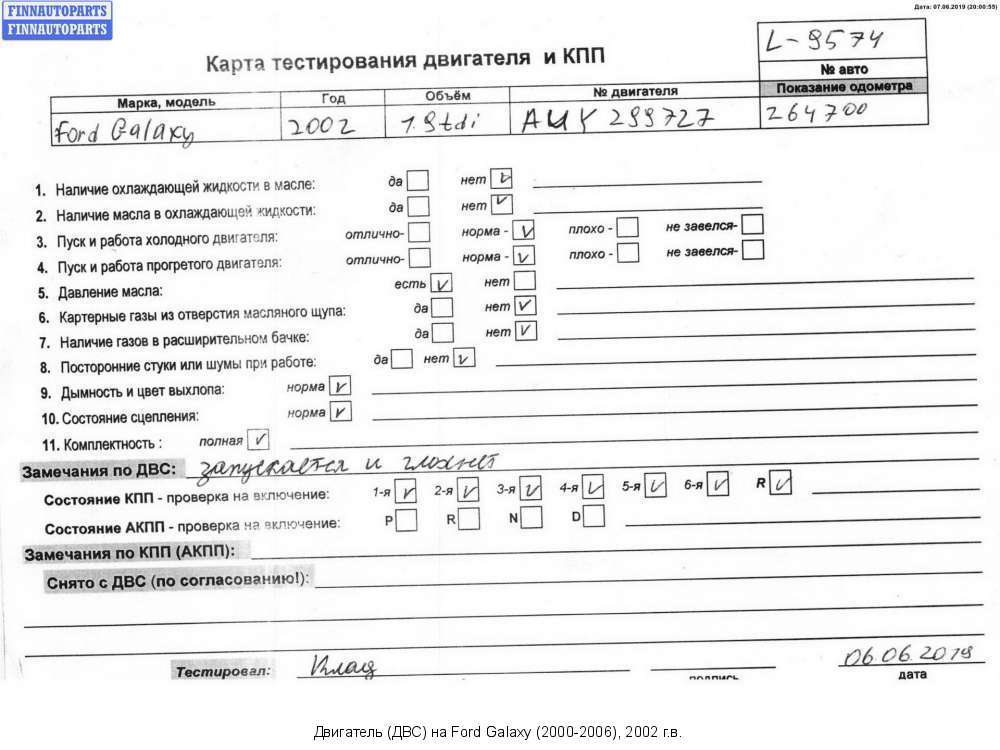 FINNAUTOPARTS
FINNAUTOPARTS
Дата: 07.06.2019 (20:00:55)
Карта тестирования двигателя и КПП
L-9574
№ авто
Марка, модель Год Объём № двигателя Показание одометра
Ford Galaxy 2002 1.9tdi AUY 299727 264700
1. Наличие охлаждающей жидкости в масле: да нет
2. Наличие масла в охлаждающей жидкости: да нет
3. Пуск и работа холодного двигателя: отлично- норма - плохо - не завелся-
4. Пуск и работа прогретого двигателя: отлично- норма - плохо - не завелся-
5. Давление масла: есть нет
6. Картерные газы из отверстия масляного щупа: да нет
7. Наличие газов в расширительном бачке: да нет
8. Посторонние стуки или шумы при работе: да нет
9. Дымность и цвет выхлопа: норма
10. Состояние сцепления: норма
11. Комплектность : полная
Замечания по ДВС: запускается и глохнет
Состояние КПП - проверка на включение: 1-я 2-я 3-я 4-я 5-я 6-я R
Состояние АКПП - проверка на включение: P R N D
Замечания по КПП (АКПП):
Снято с ДВС (по согласованию!):
Тестировал: Влад подпись 06.06.2019
дата
Двигатель (ДВС) на Ford Galaxy (2000-2006), 2002 г.в.